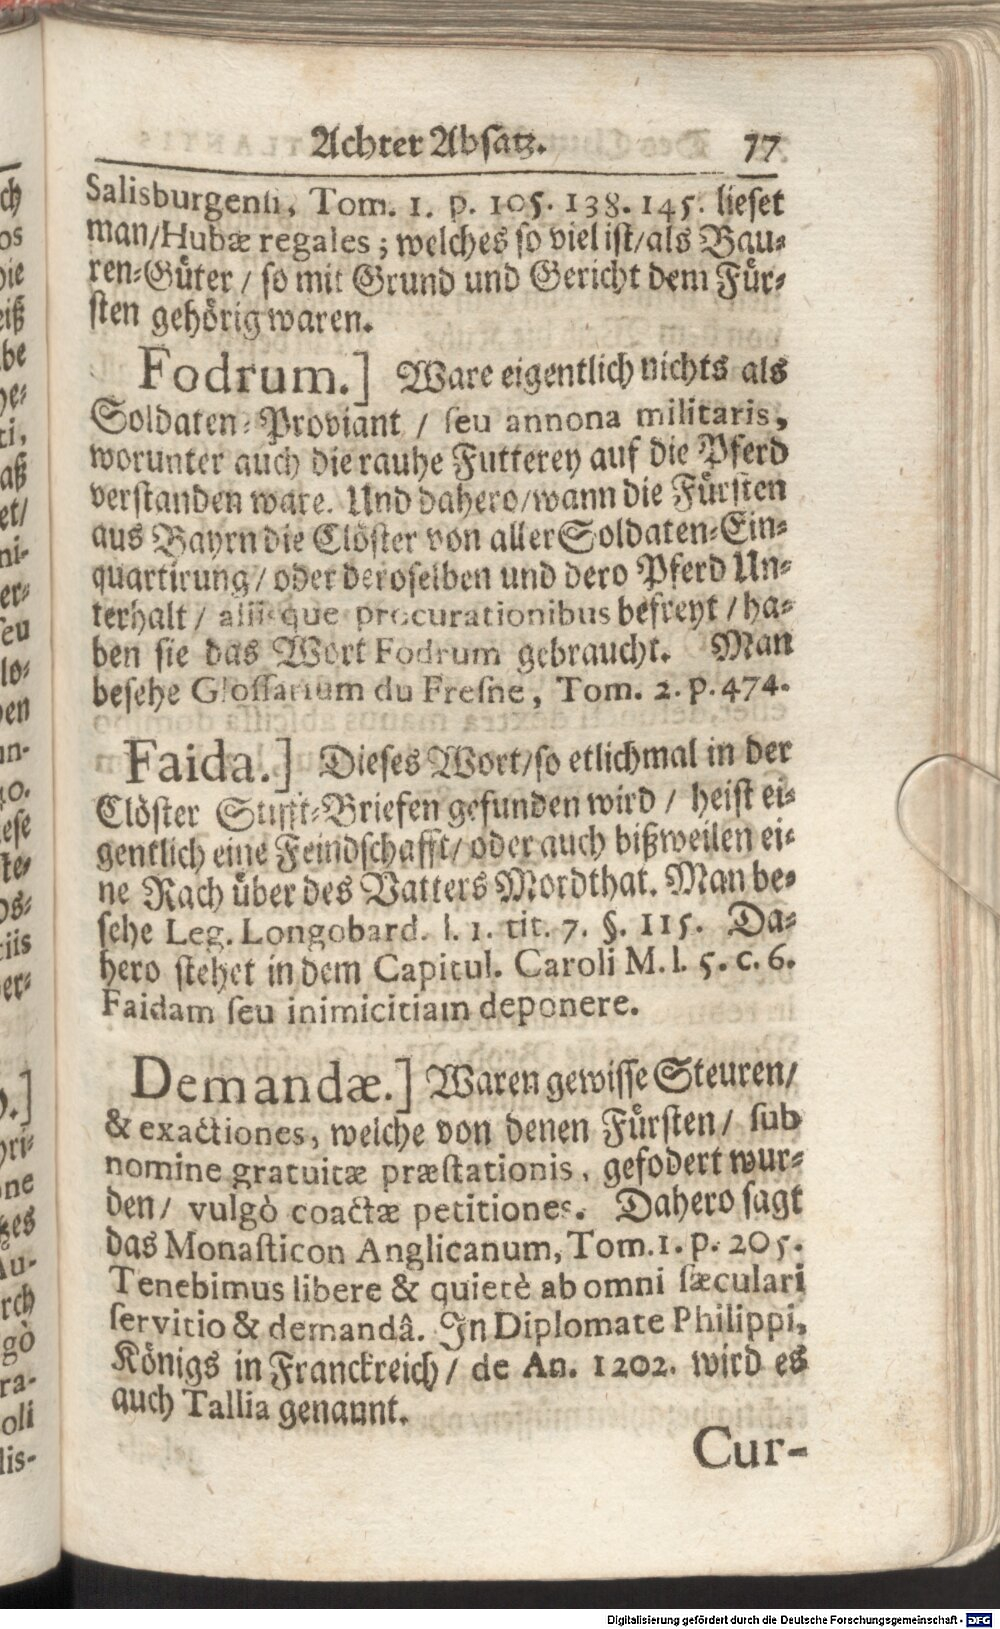 Achter Absatz. 77
Salisburgensi, Tom. 1. p. 105. 138. 145. lieset
man/Hubæ regales; welches so viel ist/als Bau-
ren-Güter / so mit Grund und Gericht dem Für-
sten gehörig waren.
Fodrum.] Ware eigentlich nichts als
Soldaten-Proviant / seu annona militaris,
worunter auch die rauhe Futterey auf die Pferd
verstanden ware. Und dahero/wann die Fürsten
aus Bayrn die Clöster von aller Soldaten-Ein-
quartirung/ oder deroselben und dero Pferd Un-
terhalt / aliisque procurationibus befreyt / ha-
ben sie das Wort Fodrum gebraucht. Man
besehe Glossarium du Fresne, Tom. 2. p. 474.
Faida.] Dieses Wort/so etlichmal in der
Clöster Stifft-Briefen gefunden wird / heist ei-
gentlich eine Feindschafft/ oder auch bißweilen ei-
ne Rach über des Vatters Mordthat. Man be-
sehe Leg. Longobard. l. 1. tit. 7. §. 115. Da-
hero stehet in dem Capitul. Caroli M. l. 5. c. 6.
Faidam seu inimicitiam deponere.
Demandæ.] Waren gewisse Steuren/
& exactiones, welche von denen Fürsten / sub
nomine gratuitæ præstationis, gefodert wur-
den/ vulgò coactæ petitiones. Dahero sagt
das Monasticon Anglicanum, Tom. 1. p. 205.
Tenebimus libere & quietè ab omni sæculari
servitio & demandâ. In Diplomate Philippi,
Königs in Franckreich / de An. 1202. wird es
auch Tallia genannt.
Cur-
Digitalisierung gefördert durch die Deutsche Forschungsgemeinschaft - DFG